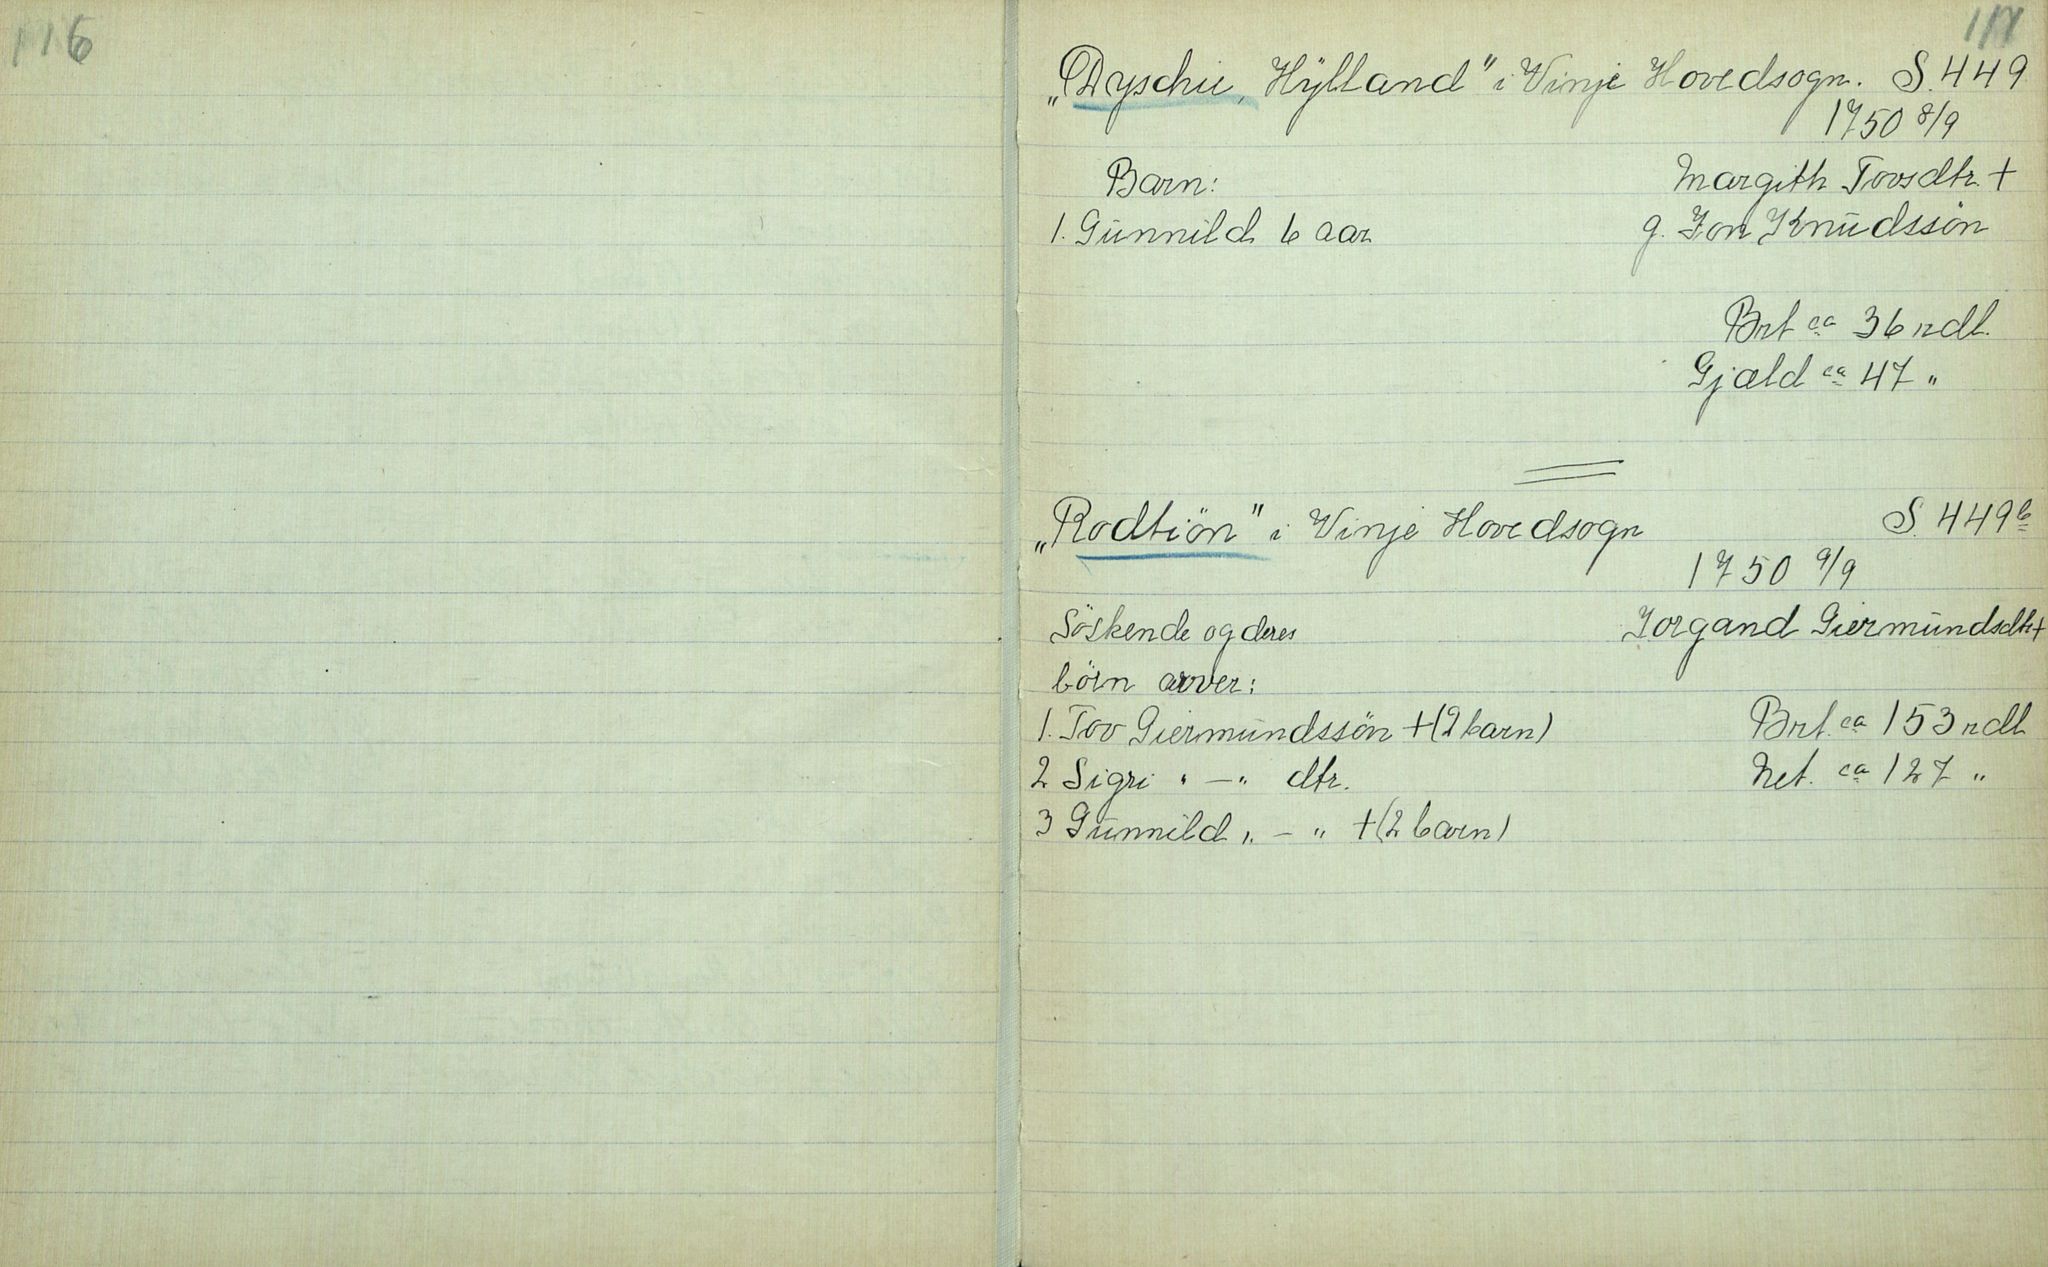 116
117
„Dyschie, Hÿlland" i Vinje Hovedsogn. S. 449
1750 8/9
Barn: Margith Tovsdtr. +
1. Gunnild 6 aar g. Jon Knudssön
Brt ca 36 rdl.
Gjæld ca 47 "
„Rodtiön" i Vinje Hovedsogn S. 449b
1750 9/9
Söskende og deres Jorgand Giermundsdtr +
börn arver:
1. Tov Giermundssön + (2 barn) Brt. ca 153 rdl
2 Sigri " — " dtr. Net. ca 127 "
3 Gunnild " — " + (2 barn)